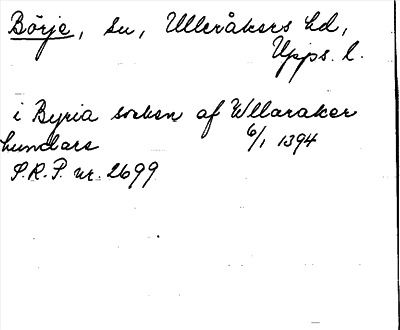 Börje, sn, Ulleråkers hd,
Upps. l.
i Byria sokn af Wllaraker
hundare 6/1 1394
S.R.P. nr. 2699